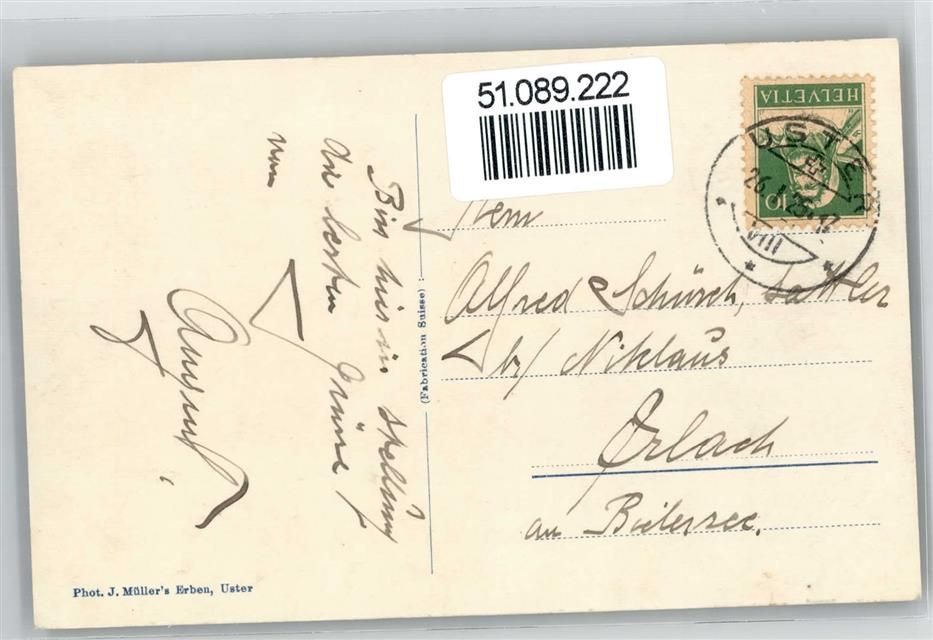 51.089.222
HELVETIA
10
USTER
VIII
Bin hier in Stellung
die besten Grüsse
von
August
(Fabrication Suisse)
Herrn
Alfred Schürch, Sattler
b/ Niklaus
Erlach
am Bielersee.
Phot. J. Müller's Erben, Uster